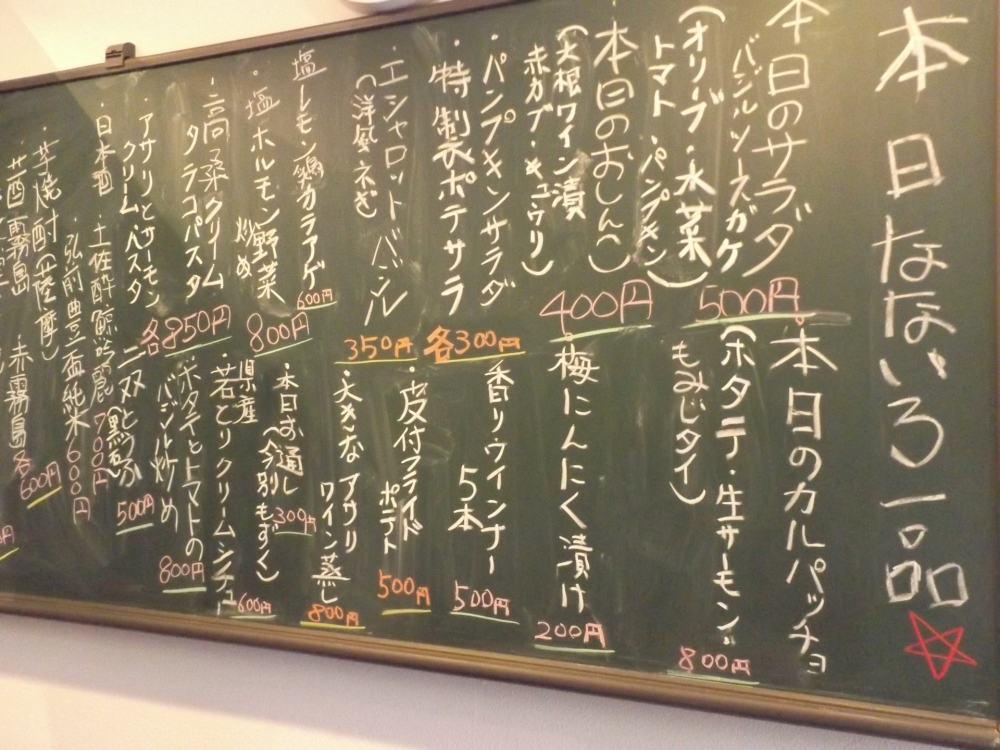 本日なないろ一品☆
本日のサラダ
バジルソースガケ
(オリーブ・水菜
トマト・パンプキン)
500円
本日のおしんこ
(大根ワイン漬
赤カブ・キュウリ)
400円
・パンプキンサラダ
・特製ポテサラ
各300円
・エシャロットバジル
(洋風ネギ)
350円
塩レモン鶏カラアゲ
600円
・塩ホルモン野菜
炒め
800円
・高菜クリーム
タラコパスタ
・アサリとサーモン
クリームパスタ
各850円
・本日のカルパッチョ
(ホタテ・生サーモン・
もみじタイ)
800円
・梅にんにく漬け
200円
香りウインナー
5本
500円
・皮付フライド
ポテト
500円
・大きなアサリ
ワイン蒸し
800円
・本日お通し
(今別もずく)
300円
県産
・若とりクリームシチュー
600円
・ホタテとトマトの
バジル炒め
800円
二双とうふ
(黒石)
500円
・日本酒
土佐酔鯨吟麗700円
弘前豊盃純米600円
・芋焼酎
茜霧島 赤霧島各
600円